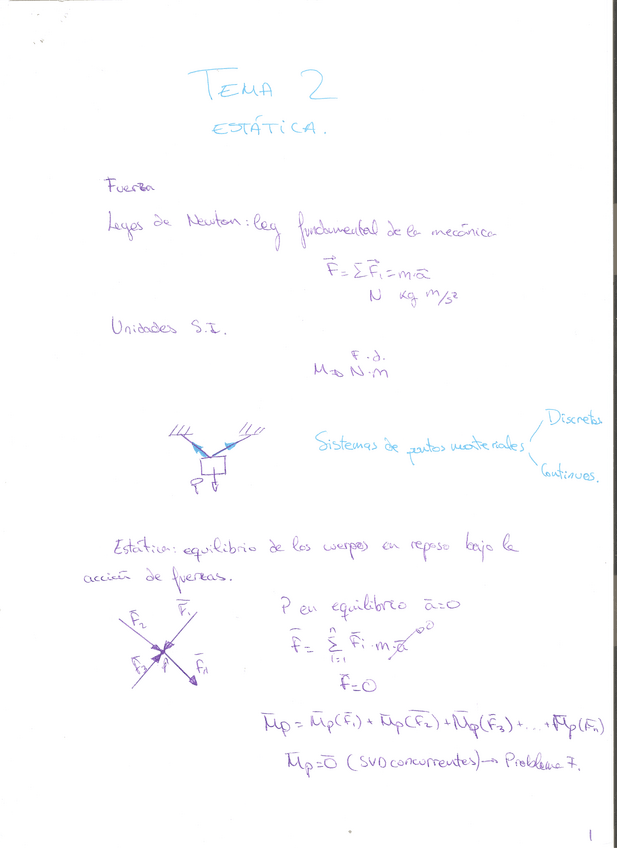 TEMA 2
ESTÁTICA.
Fuerza
Leyes de Newton: ley fundamental de la mecánica
F⃗ = ΣF⃗i = m·a̅
N kg m/s²
Unidades S.I.
F · d.
M → N·m
P
Sistemas de puntos materiales
Discretos
Continuos.
Estática: equilibrio de los cuerpos en reposo bajo la
acción de fuerzas.
F̅2 F̅1
F̅3 P F̅n
P en equilibrio a̅=0
F̅ = Σ F̅i · m·a̅ 0
n
i=1
F̅=0
M̅p = M̅p(F̅1) + M̅p(F̅2) + M̅p(F̅3) + ... + M̅p(F̅n)
M̅p=0̅ (SVD concurrentes) → Problema 7.
1